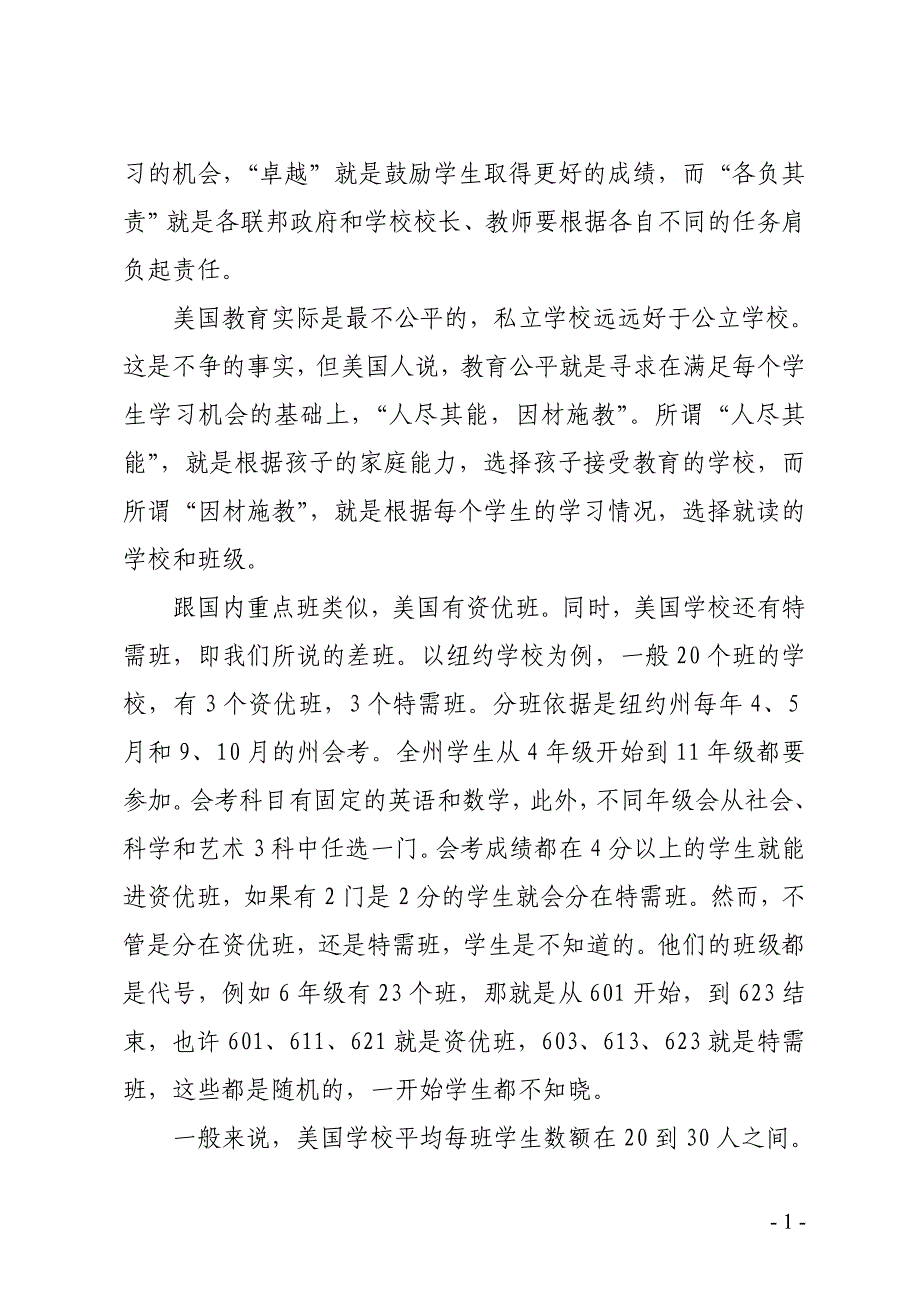 习的机会，“卓越”就是鼓励学生取得更好的成绩，而“各负其
责”就是各联邦政府和学校校长、教师要根据各自不同的任务肩
负起责任。
美国教育实际是最不公平的，私立学校远远好于公立学校。
这是不争的事实，但美国人说，教育公平就是寻求在满足每个学
生学习机会的基础上，“人尽其能，因材施教”。所谓“人尽其
能”，就是根据孩子的家庭能力，选择孩子接受教育的学校，而
所谓“因材施教”，就是根据每个学生的学习情况，选择就读的
学校和班级。
跟国内重点班类似，美国有资优班。同时，美国学校还有特
需班，即我们所说的差班。以纽约学校为例，一般 20 个班的学
校，有 3 个资优班，3 个特需班。分班依据是纽约州每年 4、5
月和 9、10 月的州会考。全州学生从 4 年级开始到 11 年级都要
参加。会考科目有固定的英语和数学，此外，不同年级会从社会、
科学和艺术 3 科中任选一门。会考成绩都在 4 分以上的学生就能
进资优班，如果有 2 门是 2 分的学生就会分在特需班。然而，不
管是分在资优班，还是特需班，学生是不知道的。他们的班级都
是代号，例如 6 年级有 23 个班，那就是从 601 开始，到 623 结
束，也许 601、611、621 就是资优班，603、613、623 就是特需
班，这些都是随机的，一开始学生都不知晓。
一般来说，美国学校平均每班学生数额在 20 到 30 人之间。
- 1 -